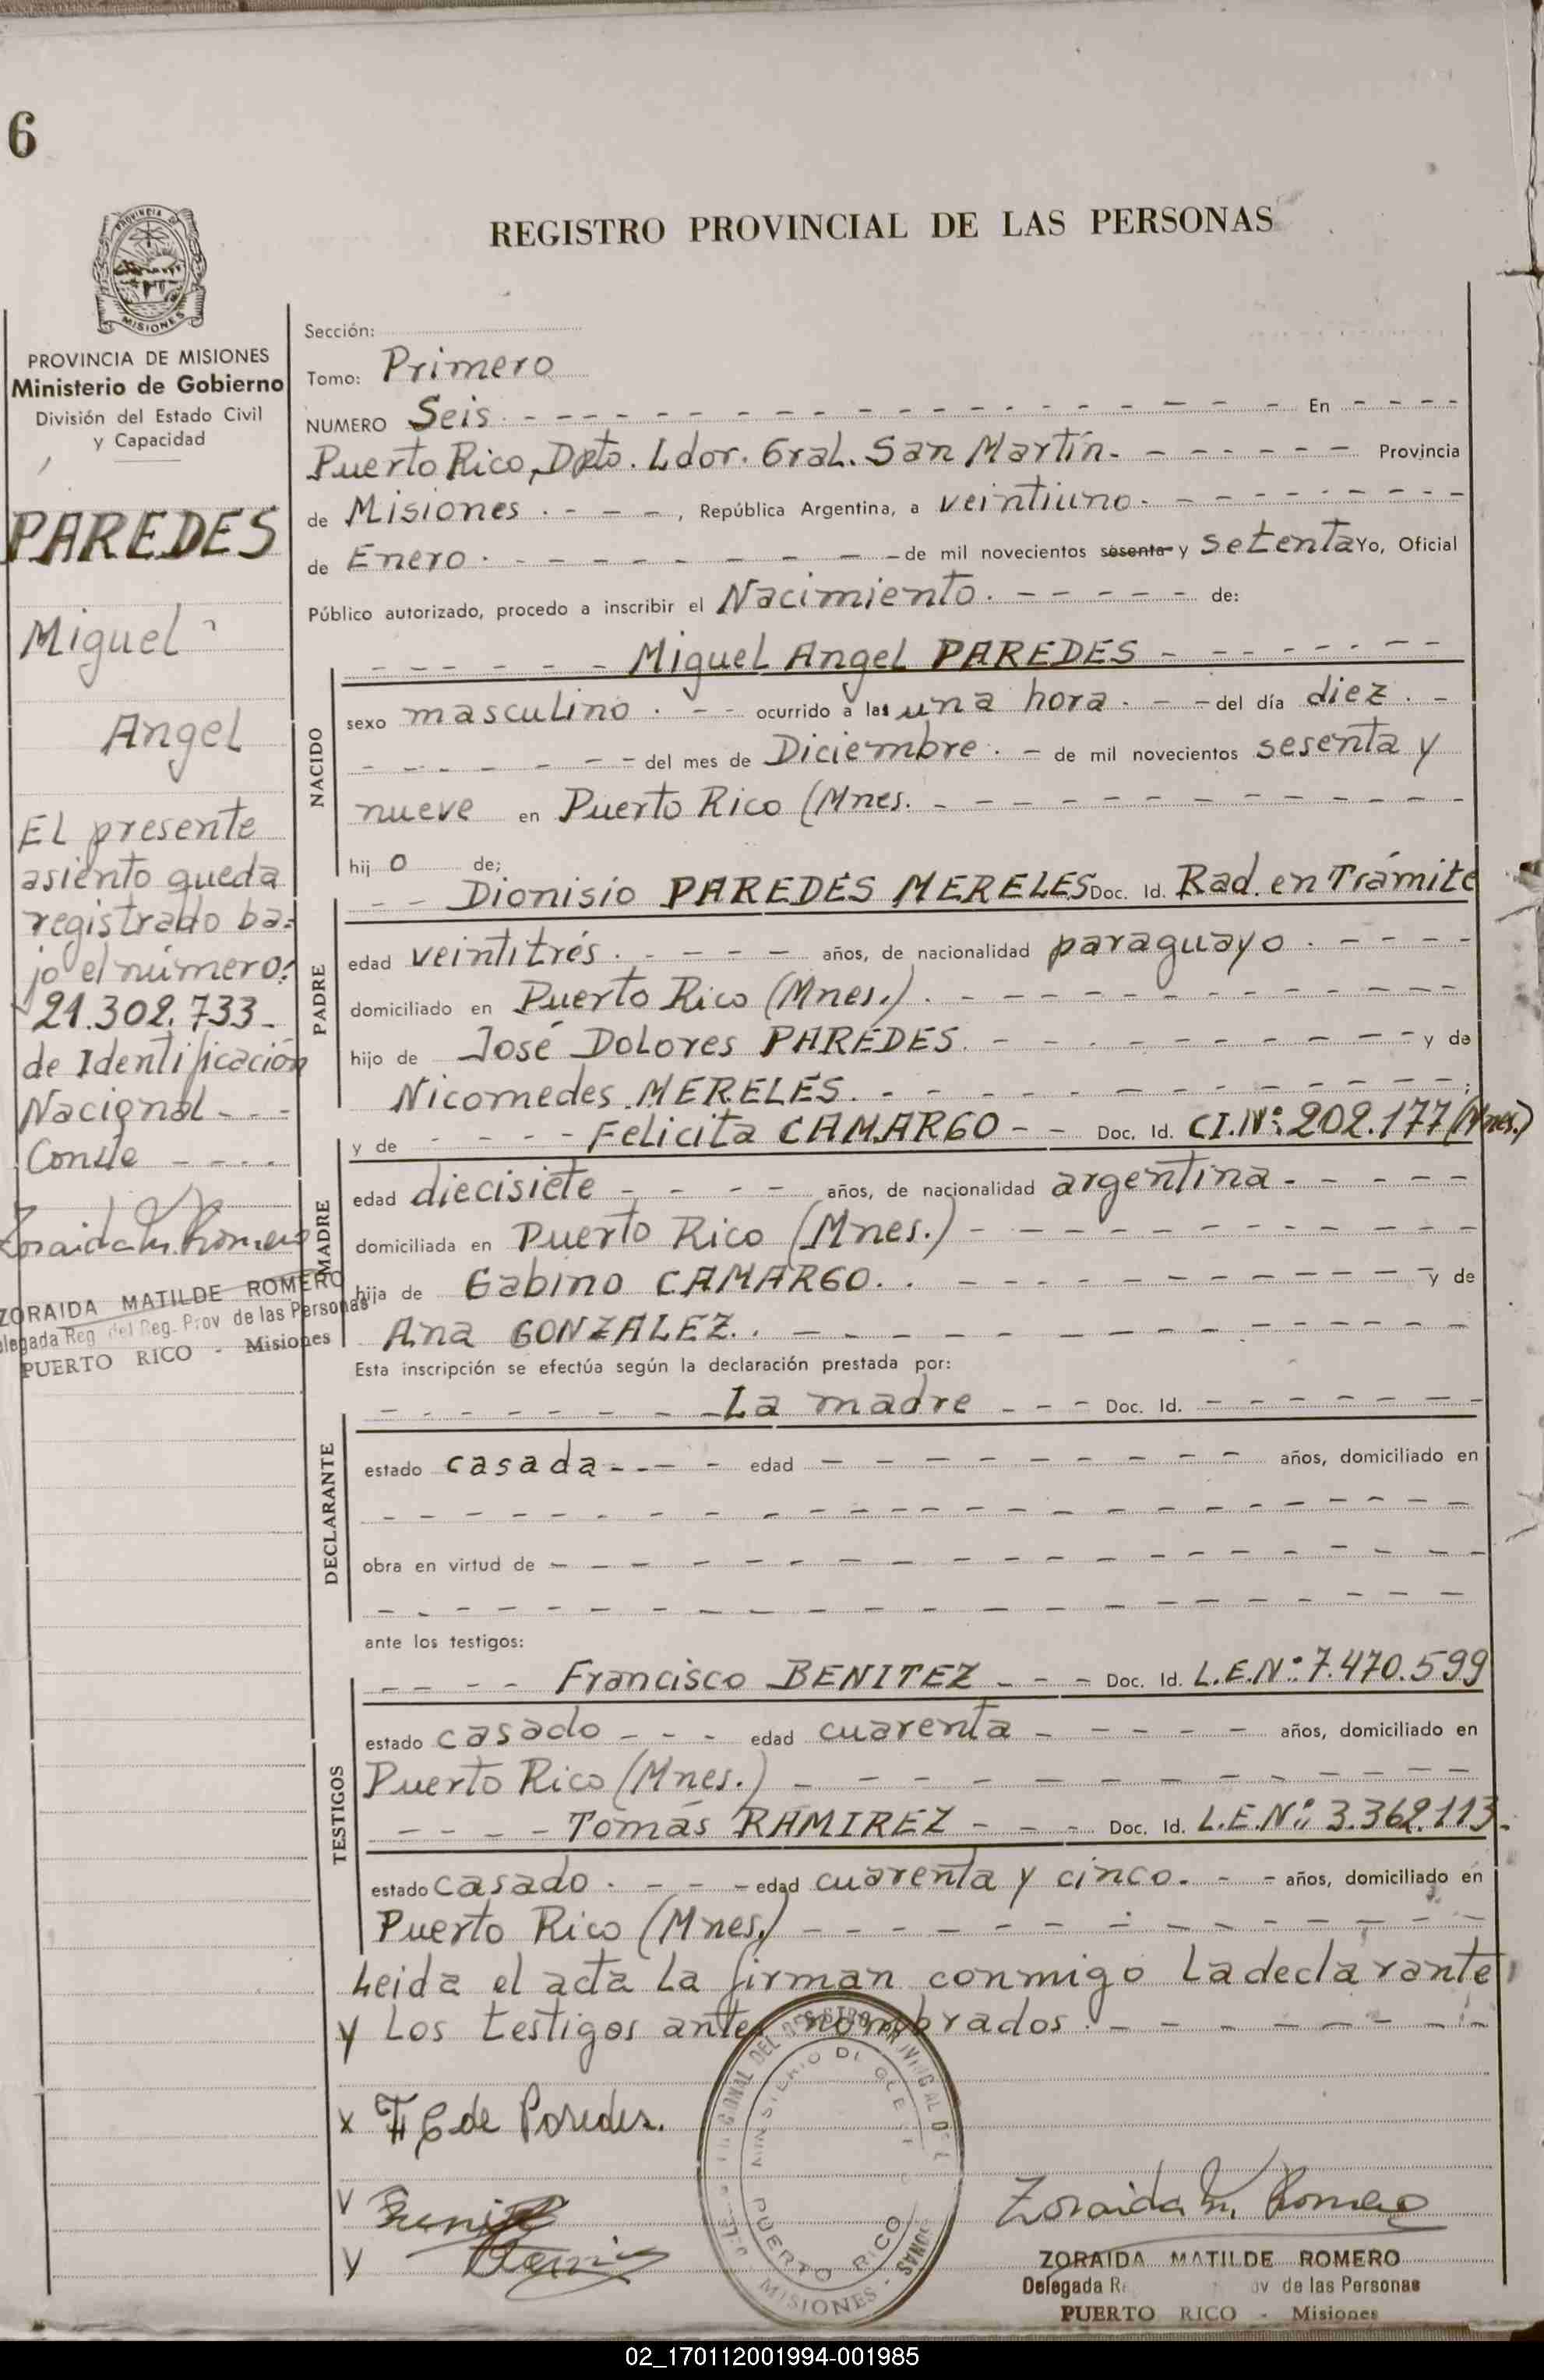 6
REGISTRO PROVINCIAL DE LAS PERSONAS
PROVINCIA DE
MISIONES
PROVINCIA DE MISIONES
Ministerio de Gobierno
División del Estado Civil
y Capacidad
PAREDES
Miguel
Angel
El presente
asiento queda
registrado ba=
jo el número:
21.302.733 -
de Identificación
Nacional - - -
Conste - - - -
Zoraida M. Romero
ZORAIDA MATILDE ROMERO
Delegada Reg. del Reg. Prov de las Personas
PUERTO RICO - Misiones
Sección:
Tomo: Primero
NUMERO Seis - - - En - - -
Puerto Rico, Dpto. Ldor. Gral. San Martín. - - - Provincia
de Misiones . - - - , República Argentina, a veintiuno - - -
de Enero . - - - de mil novecientos sesenta y setenta Yo, Oficial
Público autorizado, procedo a inscribir el Nacimiento . - - - de:
NACIDO
- - - Miguel Angel PAREDES - - -
sexo masculino . - - ocurrido a las una hora . - - del día diez . -
- - - del mes de Diciembre . - de mil novecientos sesenta y
nueve en Puerto Rico (Mnes. - - -
hij o de;
PADRE
- - Dionisio PAREDES MERELES Doc. Id. Rad. en Trámite
edad veintitrés . - - - años, de nacionalidad paraguayo . - - -
domiciliado en Puerto Rico (Mnes.) . - - -
hijo de José Dolores PAREDES. - - - y de
Nicomedes MERELES. - - - ;
MADRE
y de - - - Felicita CAMARGO - - Doc. Id. C.I.Nº: 202.177 (Mnes.)
edad diecisiete - - - años, de nacionalidad argentina - - -
domiciliada en Puerto Rico (Mnes.) - - -
hija de Gabino CAMARGO. . - - - y de
Ana GONZALEZ. . - - -
Esta inscripción se efectúa según la declaración prestada por:
DECLARANTE
- - - La madre - - - Doc. Id. - - -
estado casada - - - edad - - - años, domiciliado en
- - -
obra en virtud de - - -
- - -
ante los testigos:
TESTIGOS
- - - Francisco BENITEZ - - - Doc. Id. L.E.Nº: 7.470.599
estado casado - - - edad cuarenta - - - años, domiciliado en
Puerto Rico (Mnes.) - - -
- - - Tomás RAMIREZ - - - Doc. Id. L.E.Nº: 3.362.113.
estado casado . - - - edad cuarenta y cinco. - - años, domiciliado en
Puerto Rico (Mnes.) - - -
Leida el acta la firman conmigo la declarante
y los testigos antes nombrados . - - -
x F C de Paredes.
PUERTO RICO
MISIONES
Zoraida M. Romero
ZORAIDA MATILDE ROMERO
Delegada de las Personas
PUERTO RICO - Misiones
02_170112001994-001985